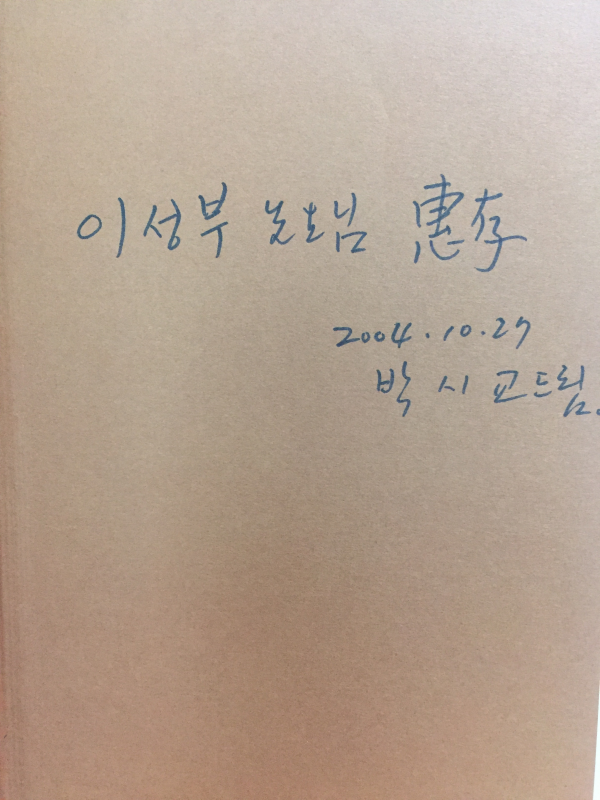 이성부 先生님 惠存
2004.10.27
박시교드림.